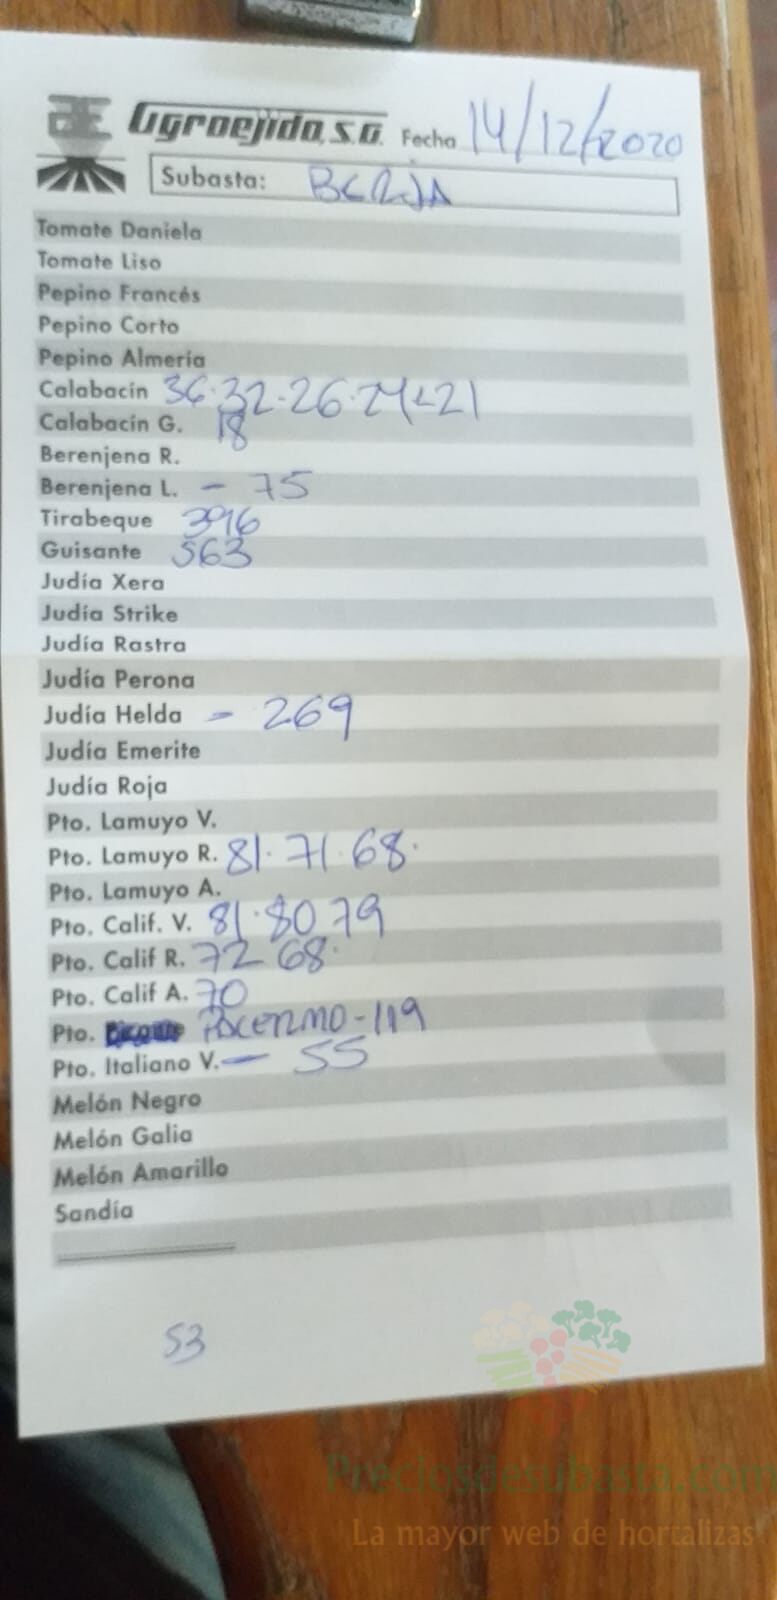 Agroejido, S.A. Fecha 14/12/2020
Subasta: BERJA
Tomate Daniela
Tomate Liso
Pepino Francés
Pepino Corto
Pepino Almería
Calabacín 36·32·26·24·21
Calabacín G. 18
Berenjena R.
Berenjena L. - 75
Tirabeque 396
Guisante 563
Judía Xera
Judía Strike
Judía Rastra
Judía Perona
Judía Helda - 269
Judía Emerite
Judía Roja
Pto. Lamuyo V.
Pto. Lamuyo R. 81·71·68·
Pto. Lamuyo A.
Pto. Calif. V. 81·80 79
Pto. Calif R. 72 68·
Pto. Calif A. 70
Pto. - 119
Pto. Italiano V. - 55
Melón Negro
Melón Galia
Melón Amarillo
Sandía
53
Preciosdesubasta.com
La mayor web de hortalizas